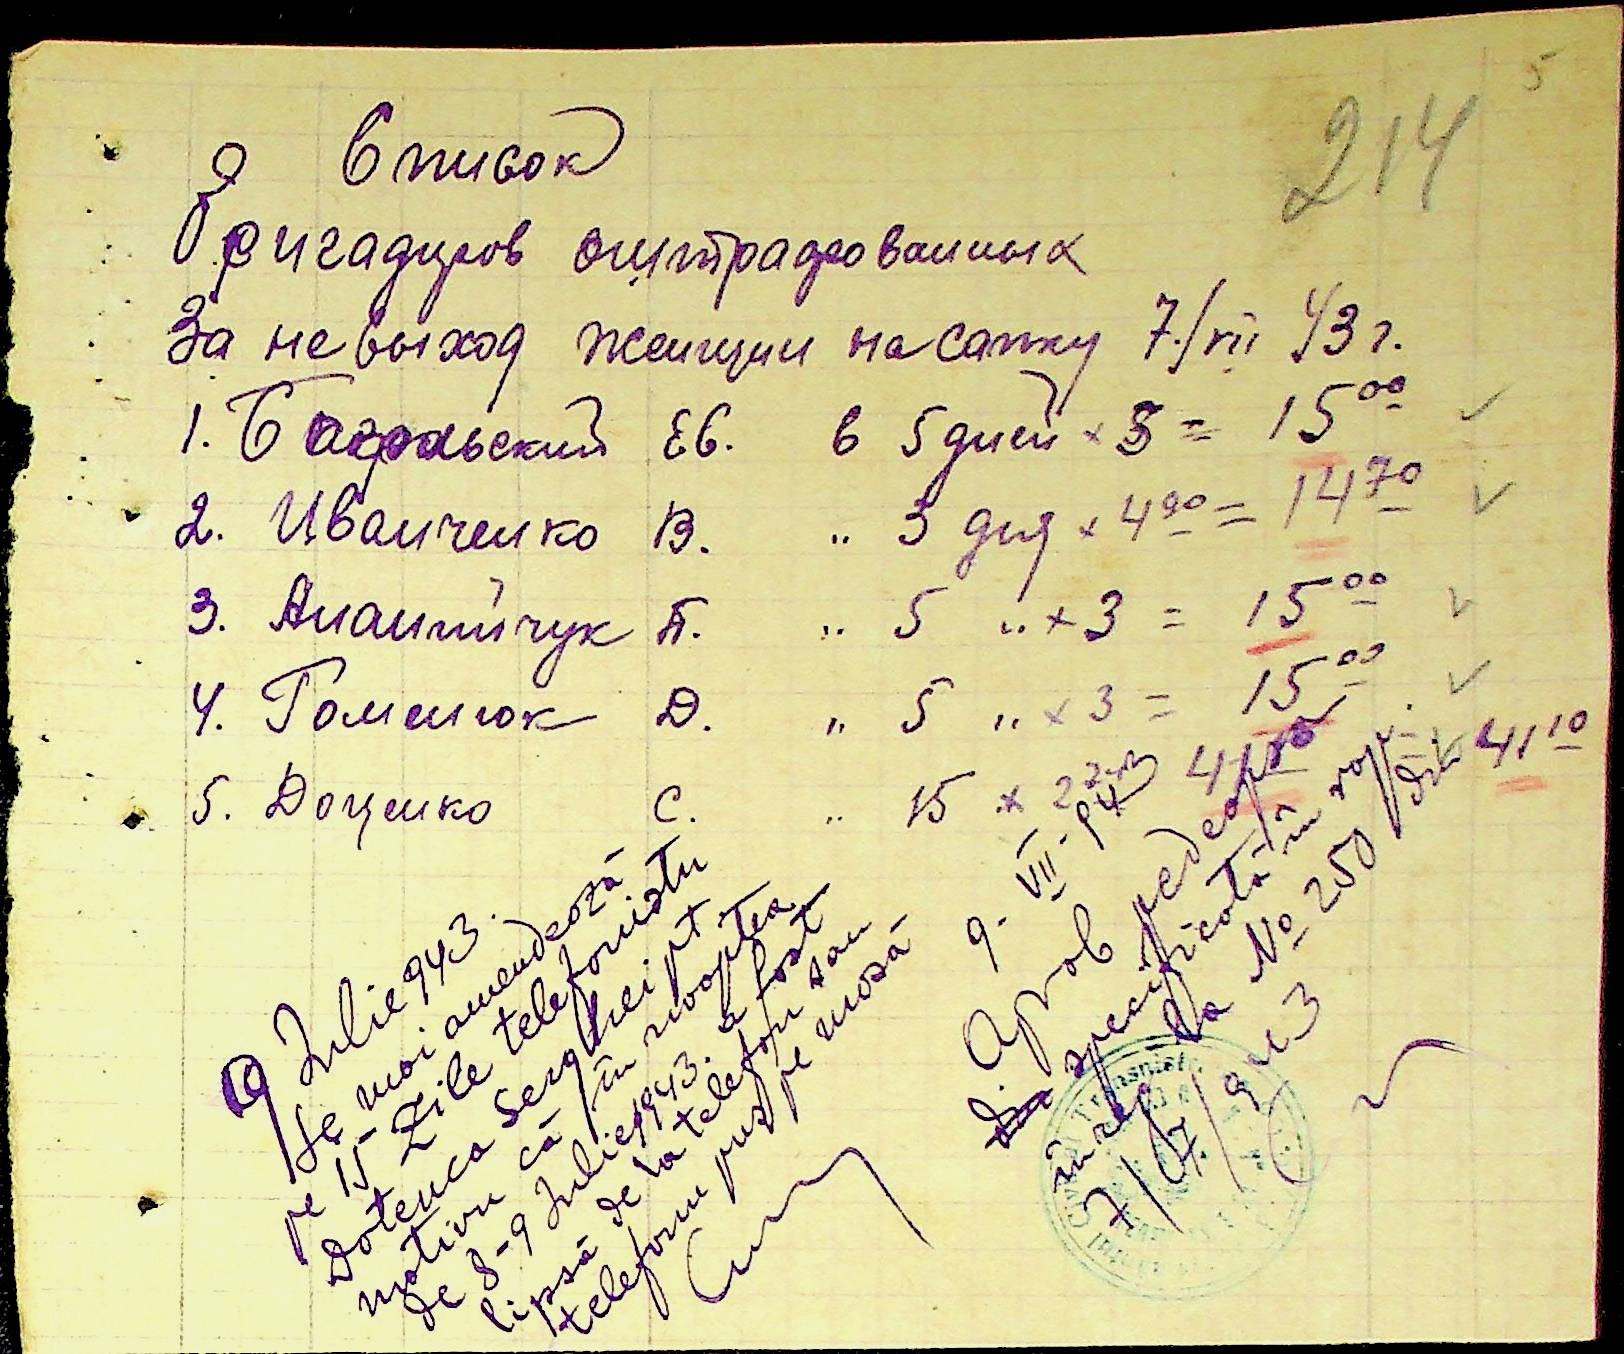 5
214
Список
бригадиров оштрафованных
За невыход женщин на сапку 7/VII 43 г.
1. Багдальский Ев. в 5 дней × 3 = 15 00
2. Иванченко В. " 3 дня × 4 90 = 14 70
3. Анантийчук П. " 5 " × 3 = 15 00
4. Гоменюк Д. " 5 " × 3 = 15 00
5. Доценко С. " 15 × 2 41 10
41 10
9 Iulie 943.
Se mai amendează
pe 15 Zile telefonistu
Dotenco Serghei pt.
motivu că în noaptea
de 8-9 Iulie 1943. a fost
lipsă de la telefon sau
telefonu pus pe masă
9. VII
Aprob pedeapsa
specificată în rap.
No 250
7/07/943